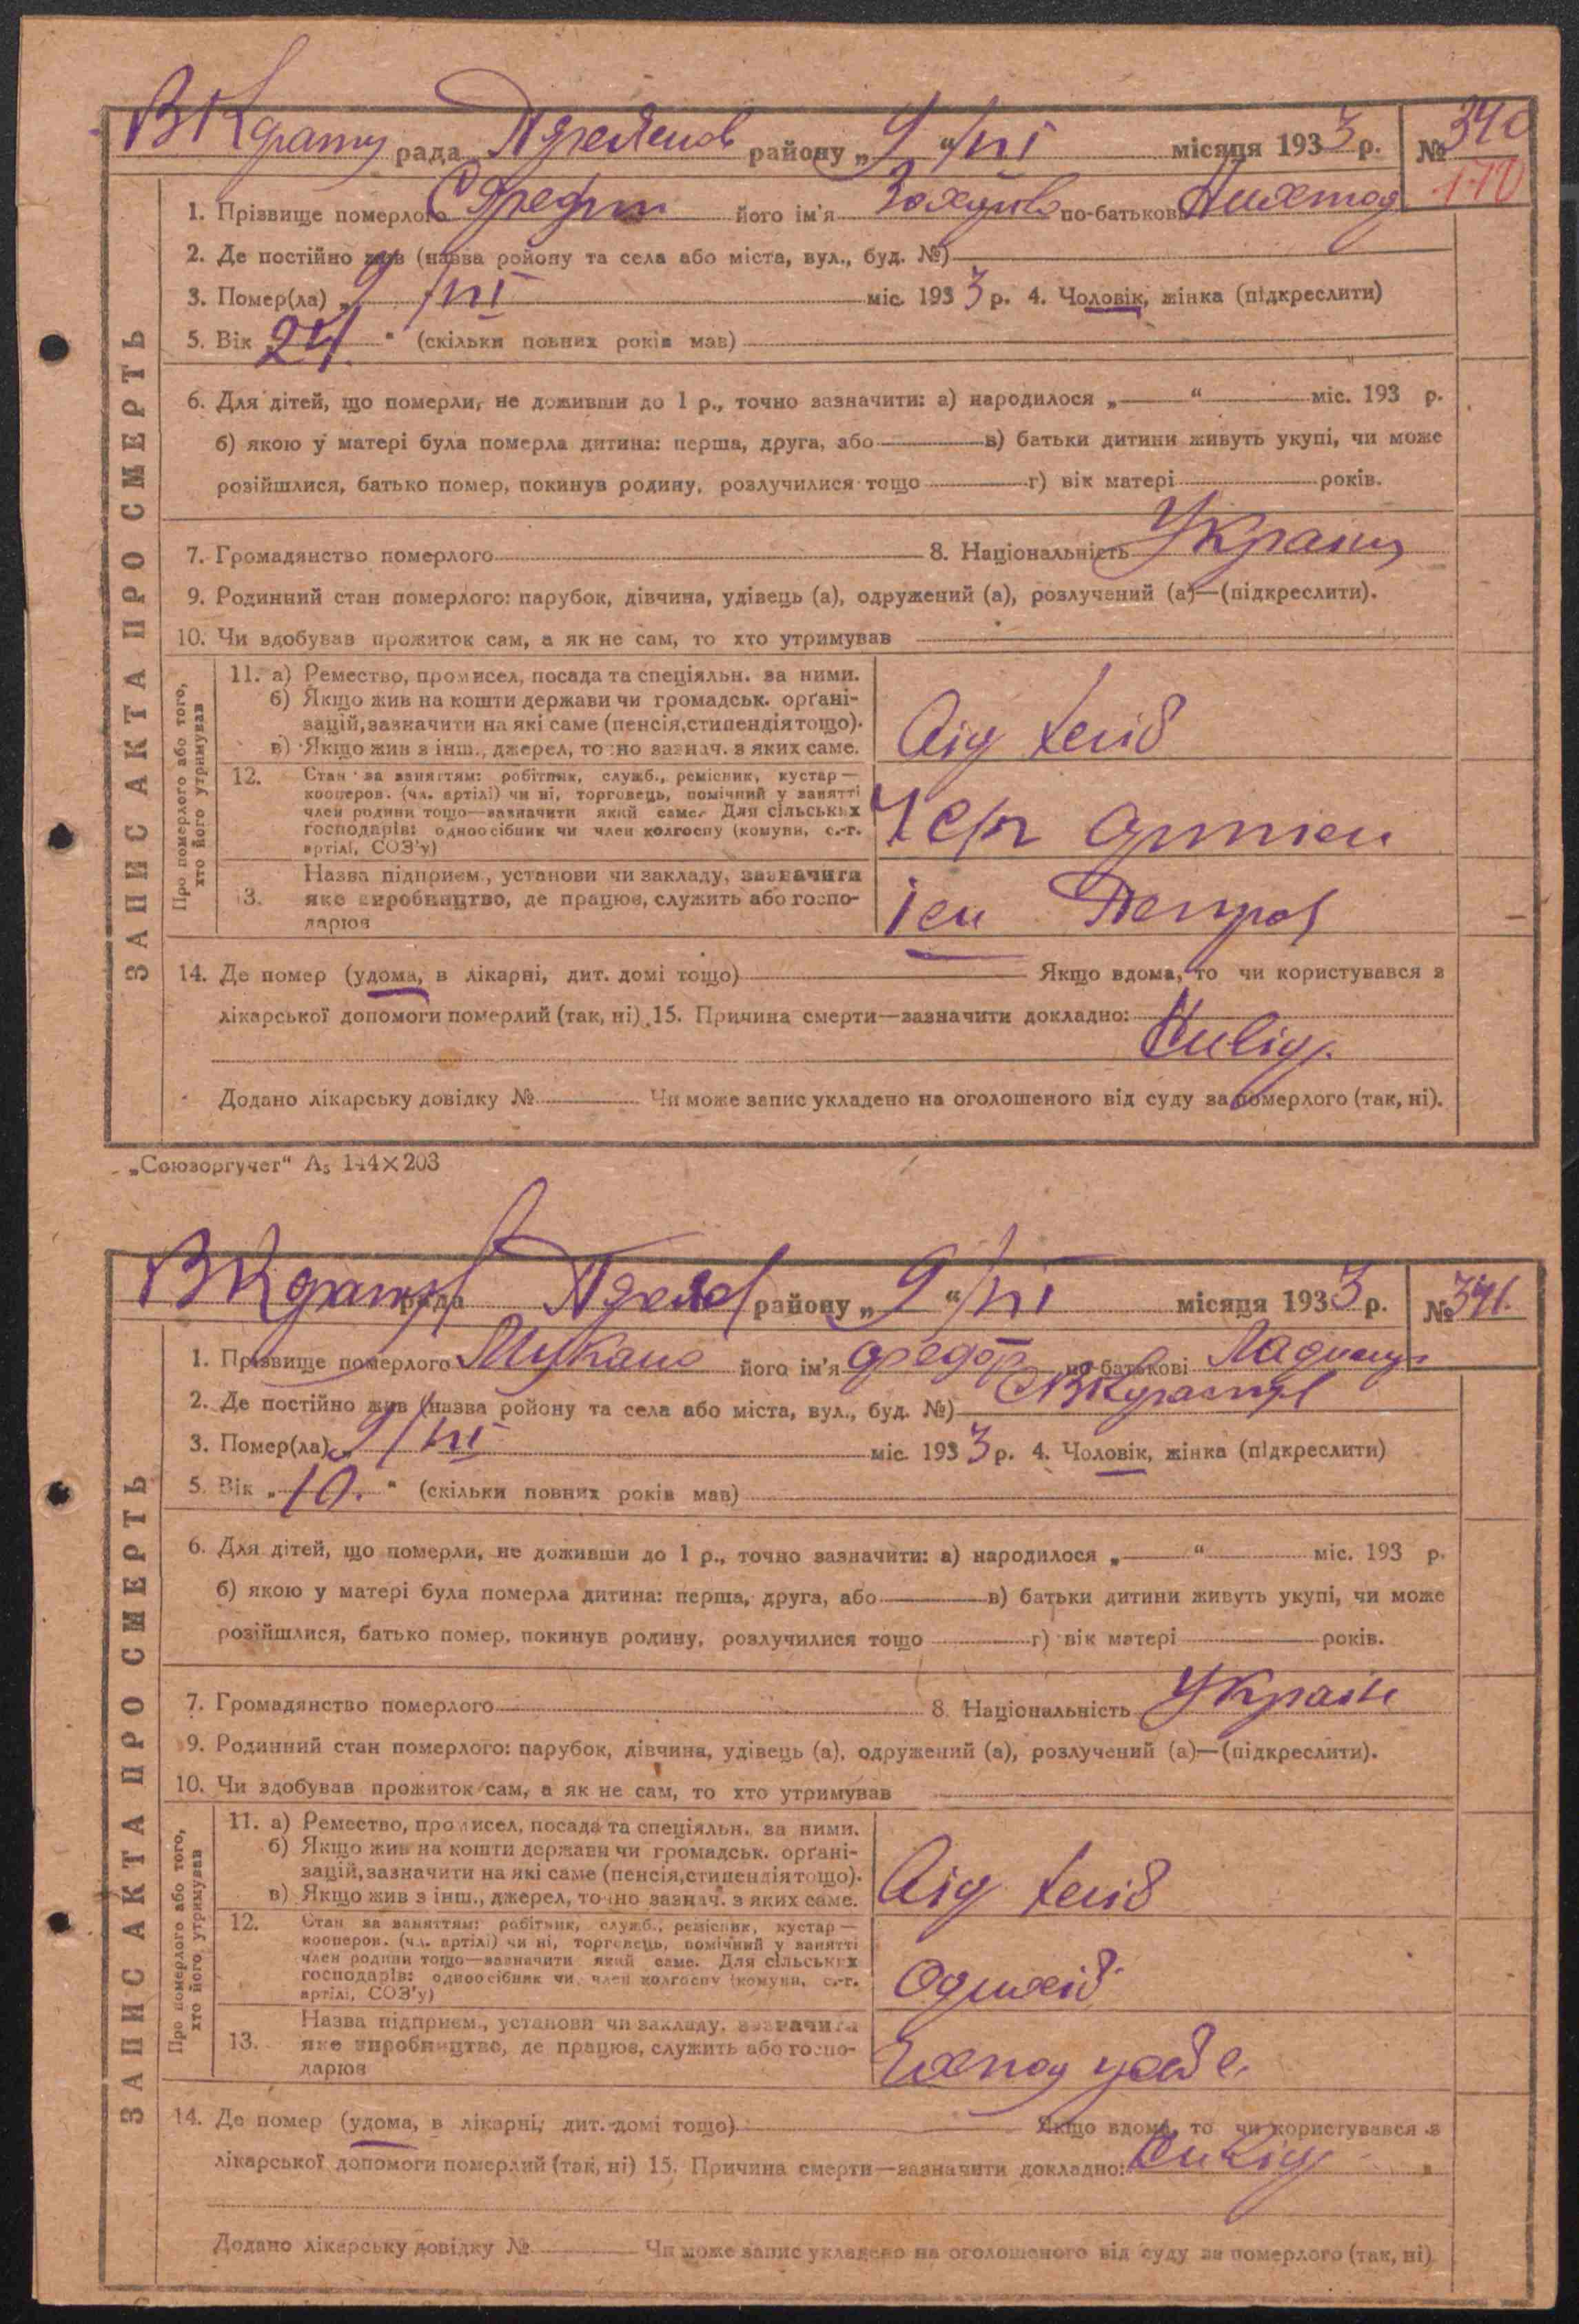 рада району „ 9 “ /VI місяця 1933 р. № 340
170
1. Прізвище померлого його ім'я по-батькові
2. Де постійно жив (назва ройону та села або міста, вул., буд. №)
3. Помер(ла) „ 9 /VI міс. 1933 р. 4. Чоловік, жінка (підкреслити)
5. Вік „ 24. “ (скільки повних років мав)
6. Для дітей, що померли, не доживши до 1 р., точно зазначити: а) народилося „ “ міс. 193 р.
б) якою у матері була померла дитина: перша, друга, або в) батьки дитини живуть укупі, чи може
розійшлися, батько помер, покинув родину, розлучилися тощо г) вік матері років.
7. Громадянство померлого 8. Національність Україн
9. Родинний стан померлого: парубок, дівчина, удівець (а), одружений (а), розлучений (а)—(підкреслити).
10. Чи здобував прожиток сам, а як не сам, то хто утримував
ЗАПИС АКТА ПРО СМЕРТЬ
Про померлого або того, хто його утримував
11. а) Ремество, промисел, посада та спеціяльн. за ними.
б) Якщо жив на кошти держави чи громадськ. орґані-
зацій, зазначити на які саме (пенсія, стипендія тощо).
в) Якщо жив з інш., джерел, точно зазнач. з яких саме.
12. Стан за заняттям: робітник, служб., ремісник, кустар—
кооперов. (чл. артілі) чи ні, торговець, помічний у занятті
член родини тощо—зазначити який саме. Для сільських
господарів: одноосібник чи член колгоспу (комуни, с.-г.
артілі, СОЗ'у)
13. Назва підприєм., установи чи закладу, зазначити
яке виробництво, де працює, служить або госпо-
дарює
14. Де помер (удома, в лікарні, дит. домі тощо) Якщо вдома, то чи користувався з
лікарської допомоги померлий (так, ні) 15. Причина смерти—зазначити докладно:
Додано лікарську довідку № Чи може запис укладено на оголошеного від суду за померлого (так, ні).
„Союзоргучет“ А₅ 144×203
рада району „ 9 “ /VI місяця 1933 р. № 341.
1. Прізвище померлого його ім'я Федор по-батькові
2. Де постійно жив (назва ройону та села або міста, вул., буд. №)
3. Помер(ла) „ 9 /VI міс. 1933 р. 4. Чоловік, жінка (підкреслити)
5. Вік „ 10. “ (скільки повних років мав)
6. Для дітей, що померли, не доживши до 1 р., точно зазначити: а) народилося „ “ міс. 193 р.
б) якою у матері була померла дитина: перша, друга, або в) батьки дитини живуть укупі, чи може
розійшлися, батько помер, покинув родину, розлучилися тощо г) вік матері років.
7. Громадянство померлого 8. Національність Україн
9. Родинний стан померлого: парубок, дівчина, удівець (а), одружений (а), розлучений (а)—(підкреслити).
10. Чи здобував прожиток сам, а як не сам, то хто утримував
ЗАПИС АКТА ПРО СМЕРТЬ
Про померлого або того, хто його утримував
11. а) Ремество, промисел, посада та спеціяльн. за ними.
б) Якщо жив на кошти держави чи громадськ. орґані-
зацій, зазначити на які саме (пенсія, стипендія тощо).
в) Якщо жив з інш., джерел, точно зазнач. з яких саме.
12. Стан за заняттям: робітник, служб., ремісник, кустар—
кооперов. (чл. артілі) чи ні, торговець, помічний у занятті
член родини тощо—зазначити який саме. Для сільських
господарів: одноосібник чи член колгоспу (комуни, с.-г.
артілі, СОЗ'у)
13. Назва підприєм., установи чи закладу, зазначити
яке виробництво, де працює, служить або госпо-
дарює
14. Де помер (удома, в лікарні, дит. домі тощо) Якщо вдома, то чи користувався з
лікарської допомоги померлий (так, ні) 15. Причина смерти—зазначити докладно:
Додано лікарську довідку № Чи може запис укладено на оголошеного від суду за померлого (так, ні)